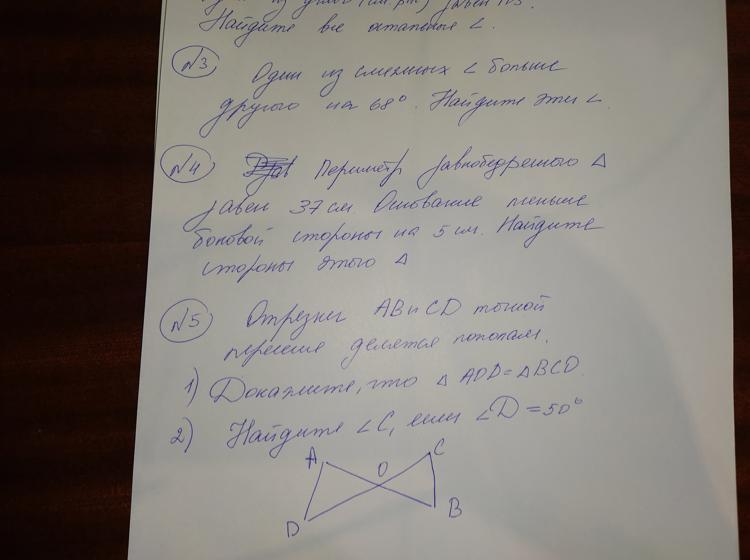 Найдите все остальные ∠.
№3
Один из смежных ∠ больше
другого на 68°. Найдите эти ∠.
№4
Периметр равнобедренного △
равен 37 см. Основание меньше
боковой стороны на 5 см. Найдите
стороны этого △
№5
Отрезки AB и CD точкой
пересече делятся пополам.
1) Докажите, что △ AOD = △ BCO.
2) Найдите ∠C, если ∠D = 50°
A
O
C
D
B